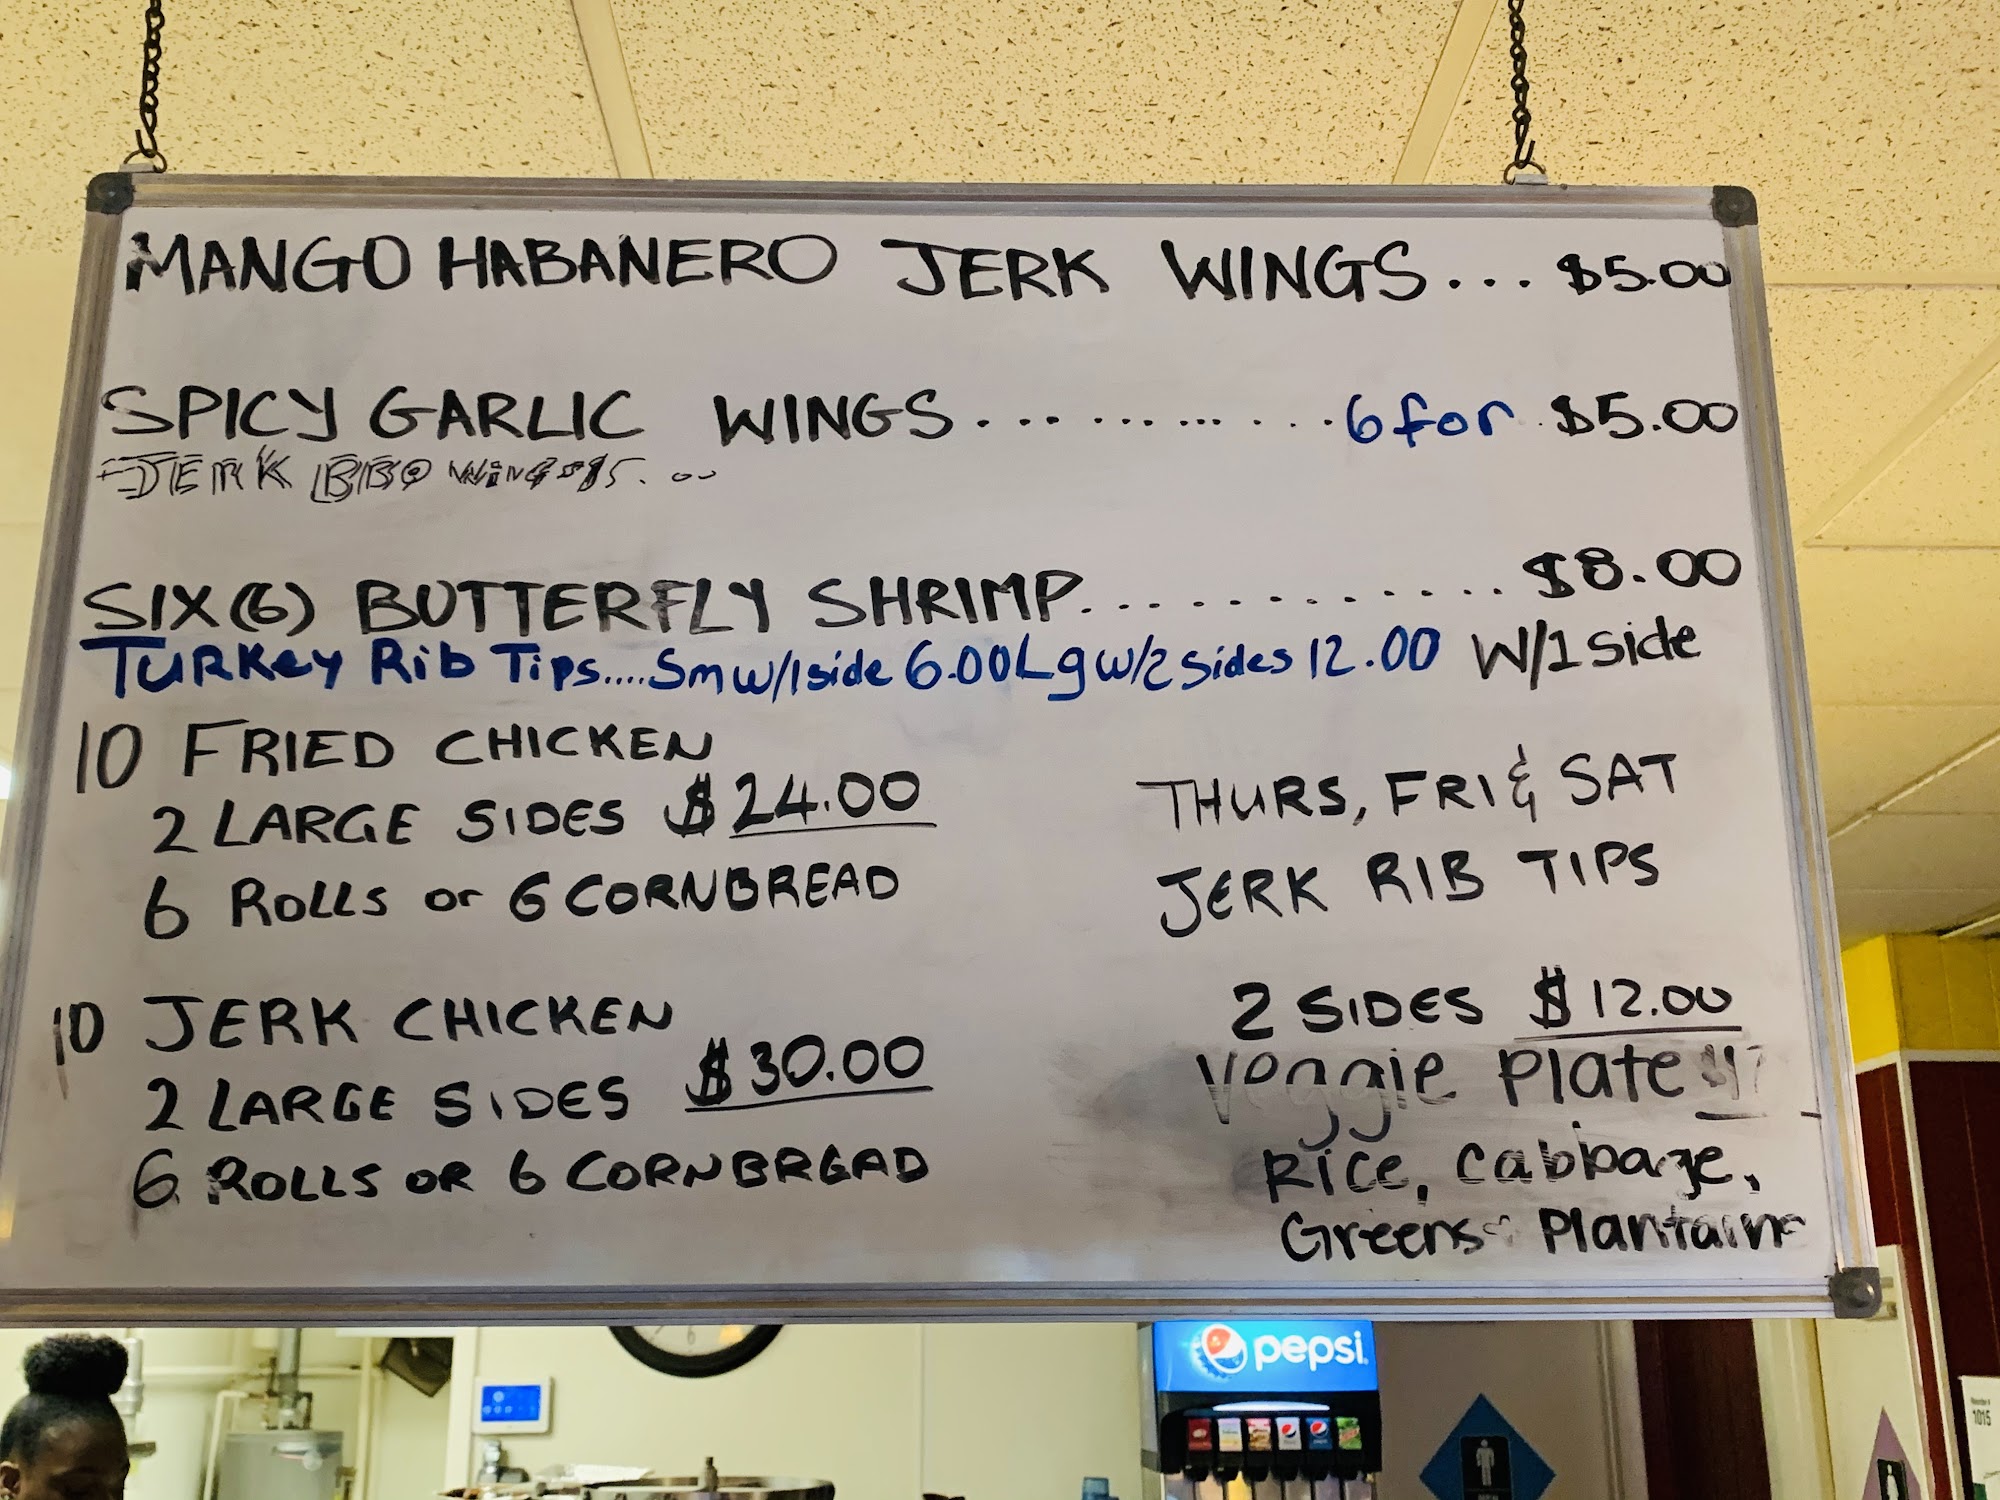 MANGO HABANERO JERK WINGS... $5.00
SPICY GARLIC WINGS............6for $5.00
JERK BBQ WINGS $5.00
SIX (6) BUTTERFLY SHRIMP............. $8.00
W/1 side
TURKey Rib Tips....Sm w/1side 6.00 Lg w/2 Sides 12.00
10 FRIED CHICKEN
2 LARGE SIDES $24.00
6 ROLLS or 6 CORNBREAD
10 JERK CHICKEN
2 LARGE SIDES $30.00
6 ROLLS OR 6 CORNBREAD
THURS, FRI & SAT
JERK RIB TIPS
2 SIDES $12.00
Veggie Plate
Rice, Cabbage,
Greens Plantain
pepsi
1015